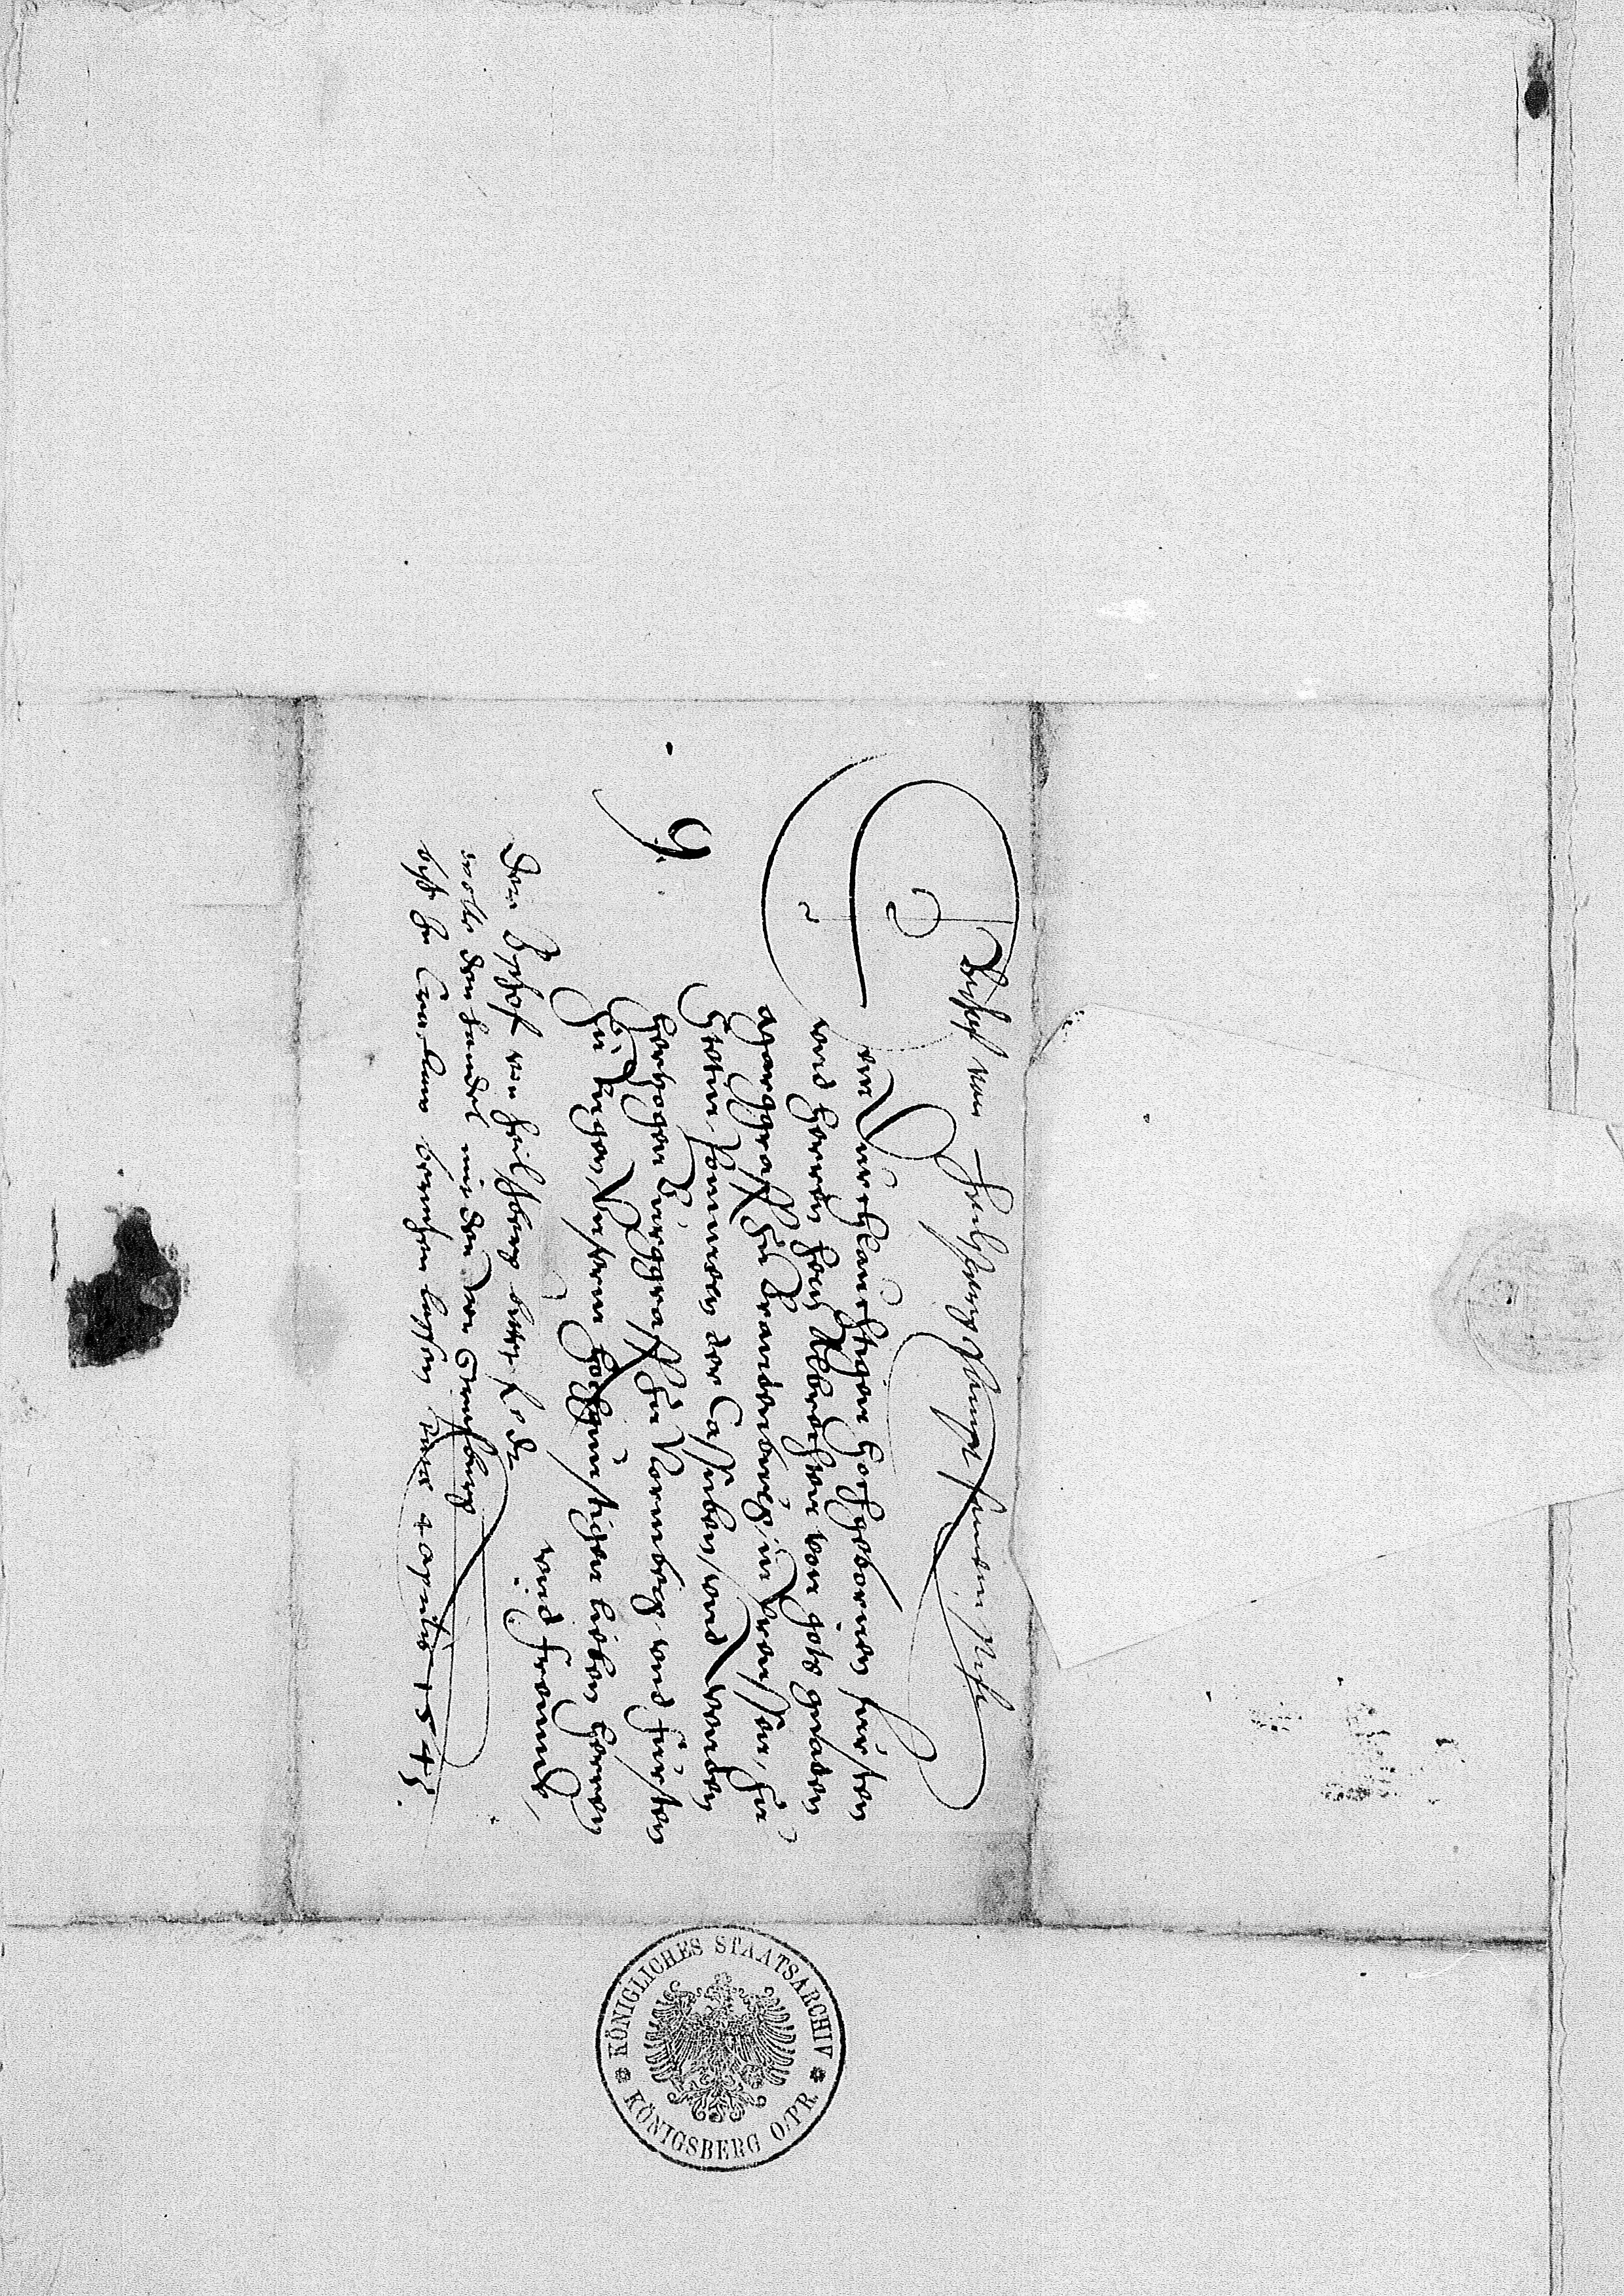 Bischof von Heilsberg
Dem Durchlauchtigen Hochgebornen fursten
und herren hern Albrechten von gots gnaden
Marggraff zu Brandenburg in Preussen, zu
Stetin Pommern der Cassuben, und Wenden
Hertzogen Burggraff zu Nornberg und fürsten
zu Rugen, Unserm hochgünstigen lieben herren
und freundt,
9
Der Bischof von Heilsberg
wolle den handel mit den von
biss zu beruhen lassen 4 Aprilis 1545.
KÖNIGLICHES STAATSARCHIV
KÖNIGSBERG O/PR.